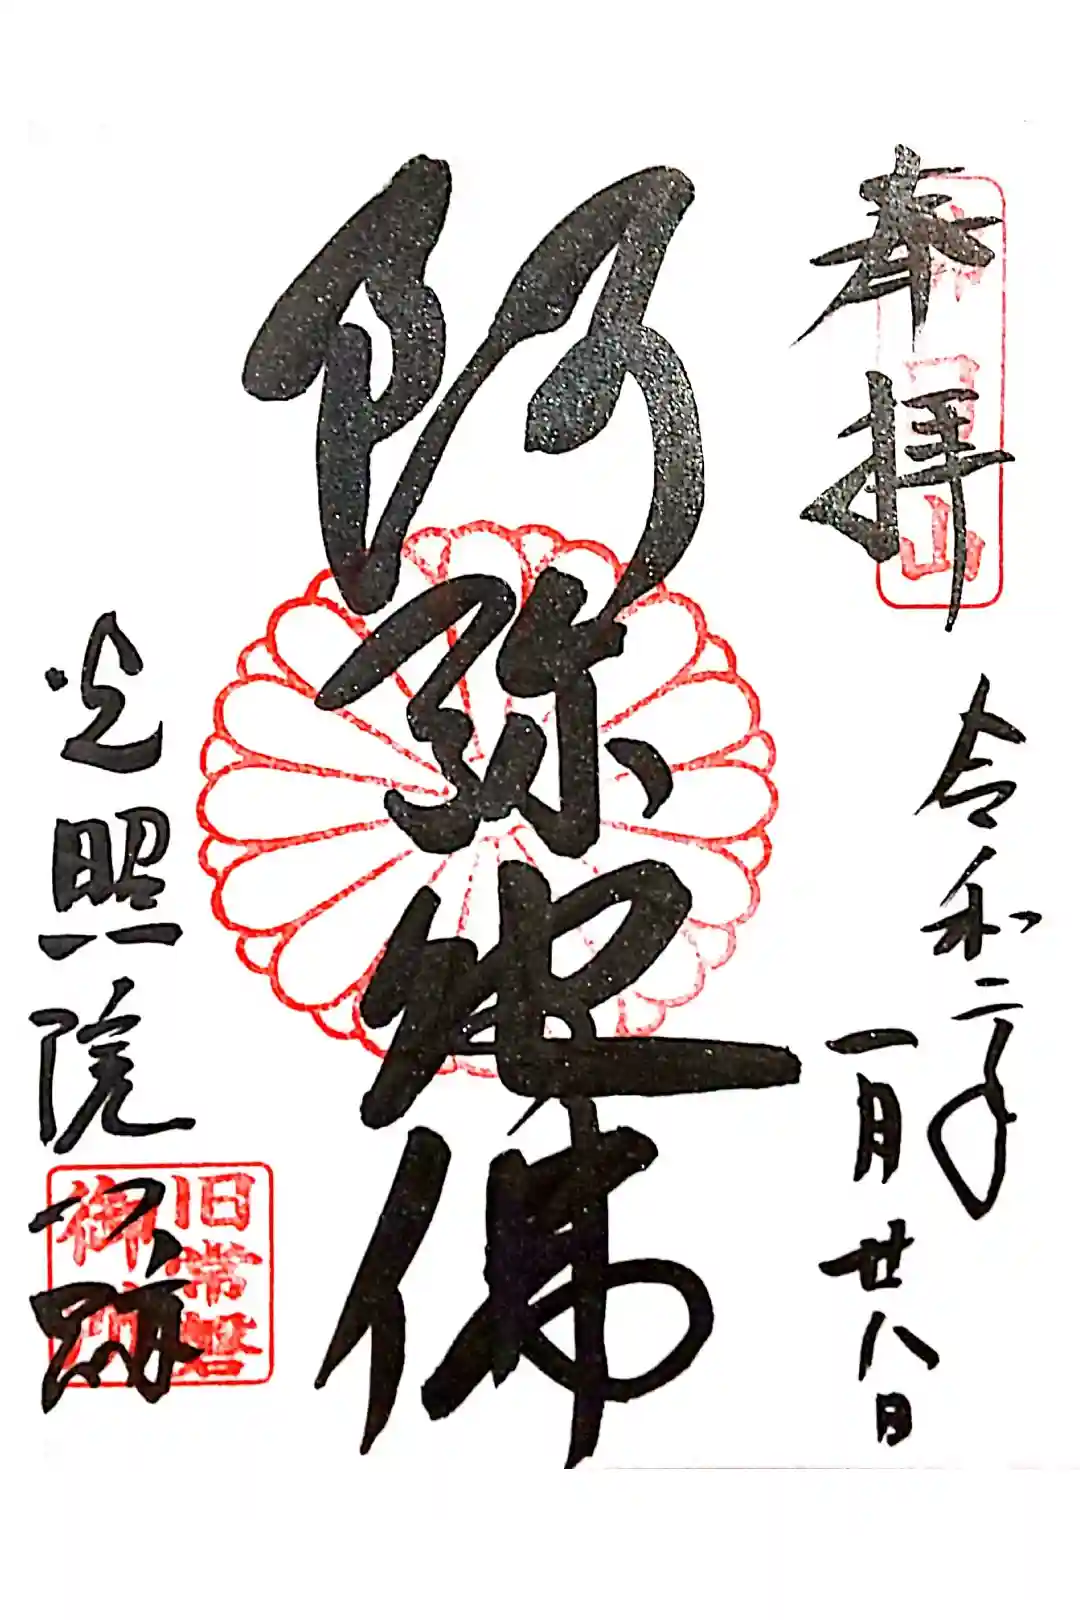 奉拝
令和二年
一月廿八日
阿弥陀佛
光照院門跡
旧常磐
御
山